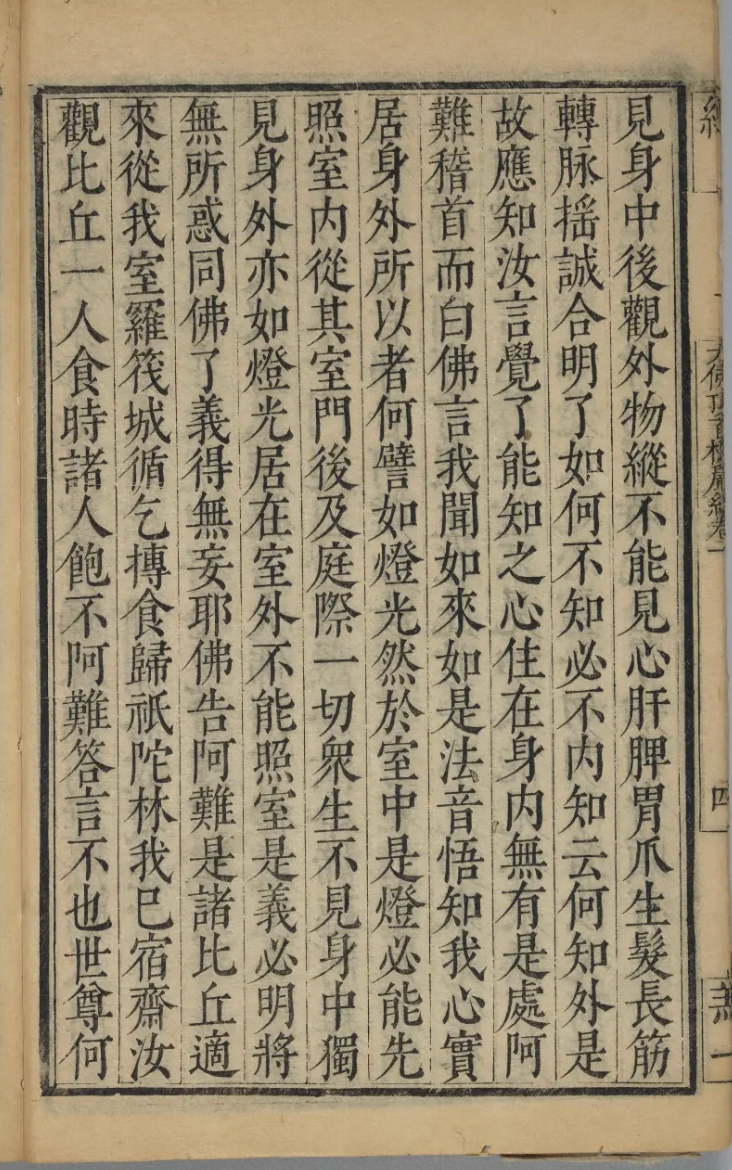 見身中後觀外物縱不能見心肝脾胃爪生髮長筋
轉脉揺誠合明了如何不知必不内知云何知外是
故應知汝言覺了能知之心住在身内無有是處阿
難稽首而白佛言我聞如來如是法音悟知我心實
居身外所以者何譬如燈光然於室中是燈必能先
照室内從其室門後及庭際一切衆生不見身中獨
見身外亦如燈光居在室外不能照室是義必明將
無所惑同佛了義得無妄耶佛告阿難是諸比丘適
來從我室羅筏城循乞摶食歸祇陀林我已宿齋汝
觀比丘一人食時諸人飽不阿難答言不也世尊何
四